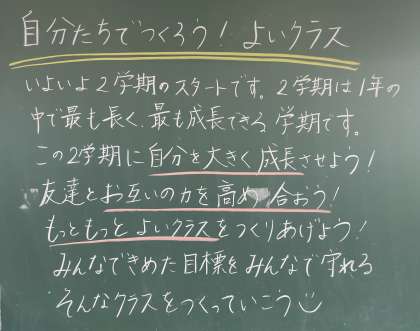 自分たちでつくろう！よいクラス
いよいよ２学期のスタートです。２学期は１年の
中で最も長く、最も成長できる学期です。
この２学期に自分を大きく成長させよう！
友達とお互いの力を高め合おう！
もっともっとよいクラスをつくりあげよう！
みんなできめた目標をみんなで守れる
そんなクラスをつくっていこう